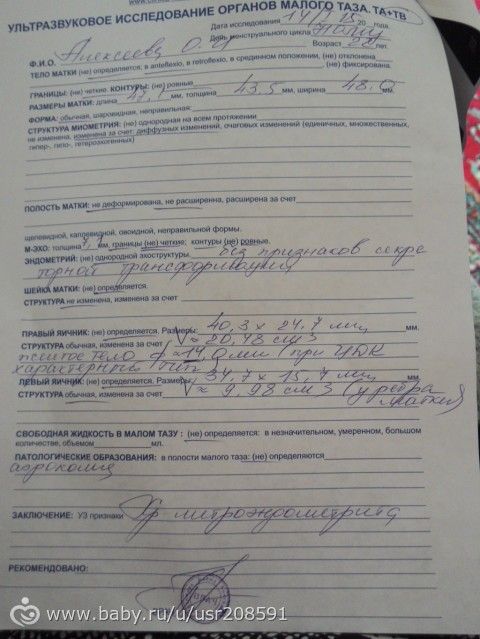 УЛЬТРАЗВУКОВОЕ ИССЛЕДОВАНИЕ ОРГАНОВ МАЛОГО ТАЗА. ТА+ТВ
Дата исследования 20 года.
День менструального цикла
Ф.И.О. Алексеева О. Возраст 22 лет.
ТЕЛО МАТКИ (не) определяется; в anteflexio, в retroflexio, в срединном положении, (не) отклонена
(не) фиксирована.
ГРАНИЦЫ: (не) четкие. КОНТУРЫ: (не) ровные.
РАЗМЕРЫ МАТКИ: длина 47,1 мм, толщина 43.5 мм, ширина 48.0 мм.
ФОРМА: обычная, шаровидная, неправильная:
СТРУКТУРА МИОМЕТРИЯ: (не) однородная на всем протяжении
не изменена, изменена за счет: диффузных изменений, очаговых изменений (единичных, множественных,
гипер-, гипо-, гетероэхогенных)
ПОЛОСТЬ МАТКИ: не деформирована, не расширенна, расширена за счет
щелевидной, каплевидной, овоидной, неправильной формы.
М-ЭХО: толщина мм, границы (не) четкие; контуры (не) ровные.
ЭНДОМЕТРИЙ: (не) однородной эхоструктуры. без признаков секре
торной трансформации
ШЕЙКА МАТКИ: (не) определяется.
СТРУКТУРА не изменена, изменена за счет
ПРАВЫЙ ЯИЧНИК: (не) определяется. Размеры: 40,3 x 24,7 мм, мм.
СТРУКТУРА обычная, изменена за счет V ≈ 20,48 см3
желтое тело ф ≈ 14,0 мм (при ЦДК
характерный тип)
ЛЕВЫЙ ЯИЧНИК: (не) определяется. Размеры: 34,7 x 15,7 мм, мм.
СТРУКТУРА обычная, изменена за счет V ≈ 9,98 см3 (у ребра
матки)
СВОБОДНАЯ ЖИДКОСТЬ В МАЛОМ ТАЗУ : (не) определяется: в незначительном, умеренном, большом
количестве, объемом мл.
ПАТОЛОГИЧЕСКИЕ ОБРАЗОВАНИЯ: в полости малого таза: (не) определяются
аэроколия
ЗАКЛЮЧЕНИЕ: УЗ признаки Хр метроэндометрита
РЕКОМЕНДОВАНО:
www.baby.ru/u/usr208591